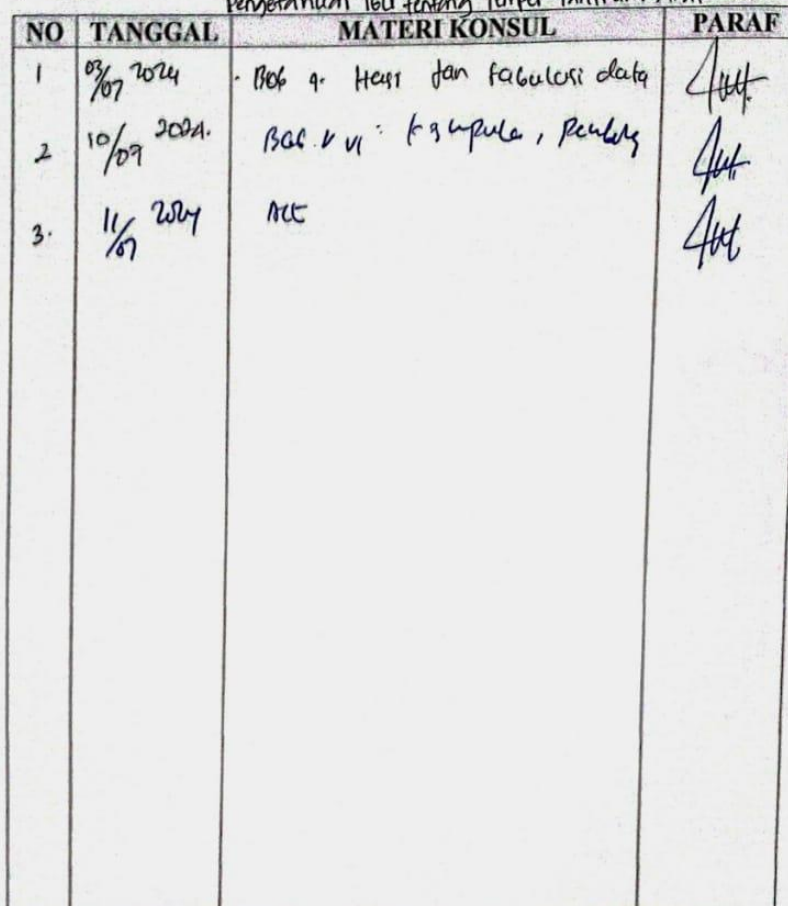 Pengetahuan Ibu tentang
NO TANGGAL MATERI KONSUL PARAF
1 03/07 2024 . Bab 4. Hasil dan tabulasi data
2 10/07 2024. Bab. V VI :
3. 11/07 2024 ACC